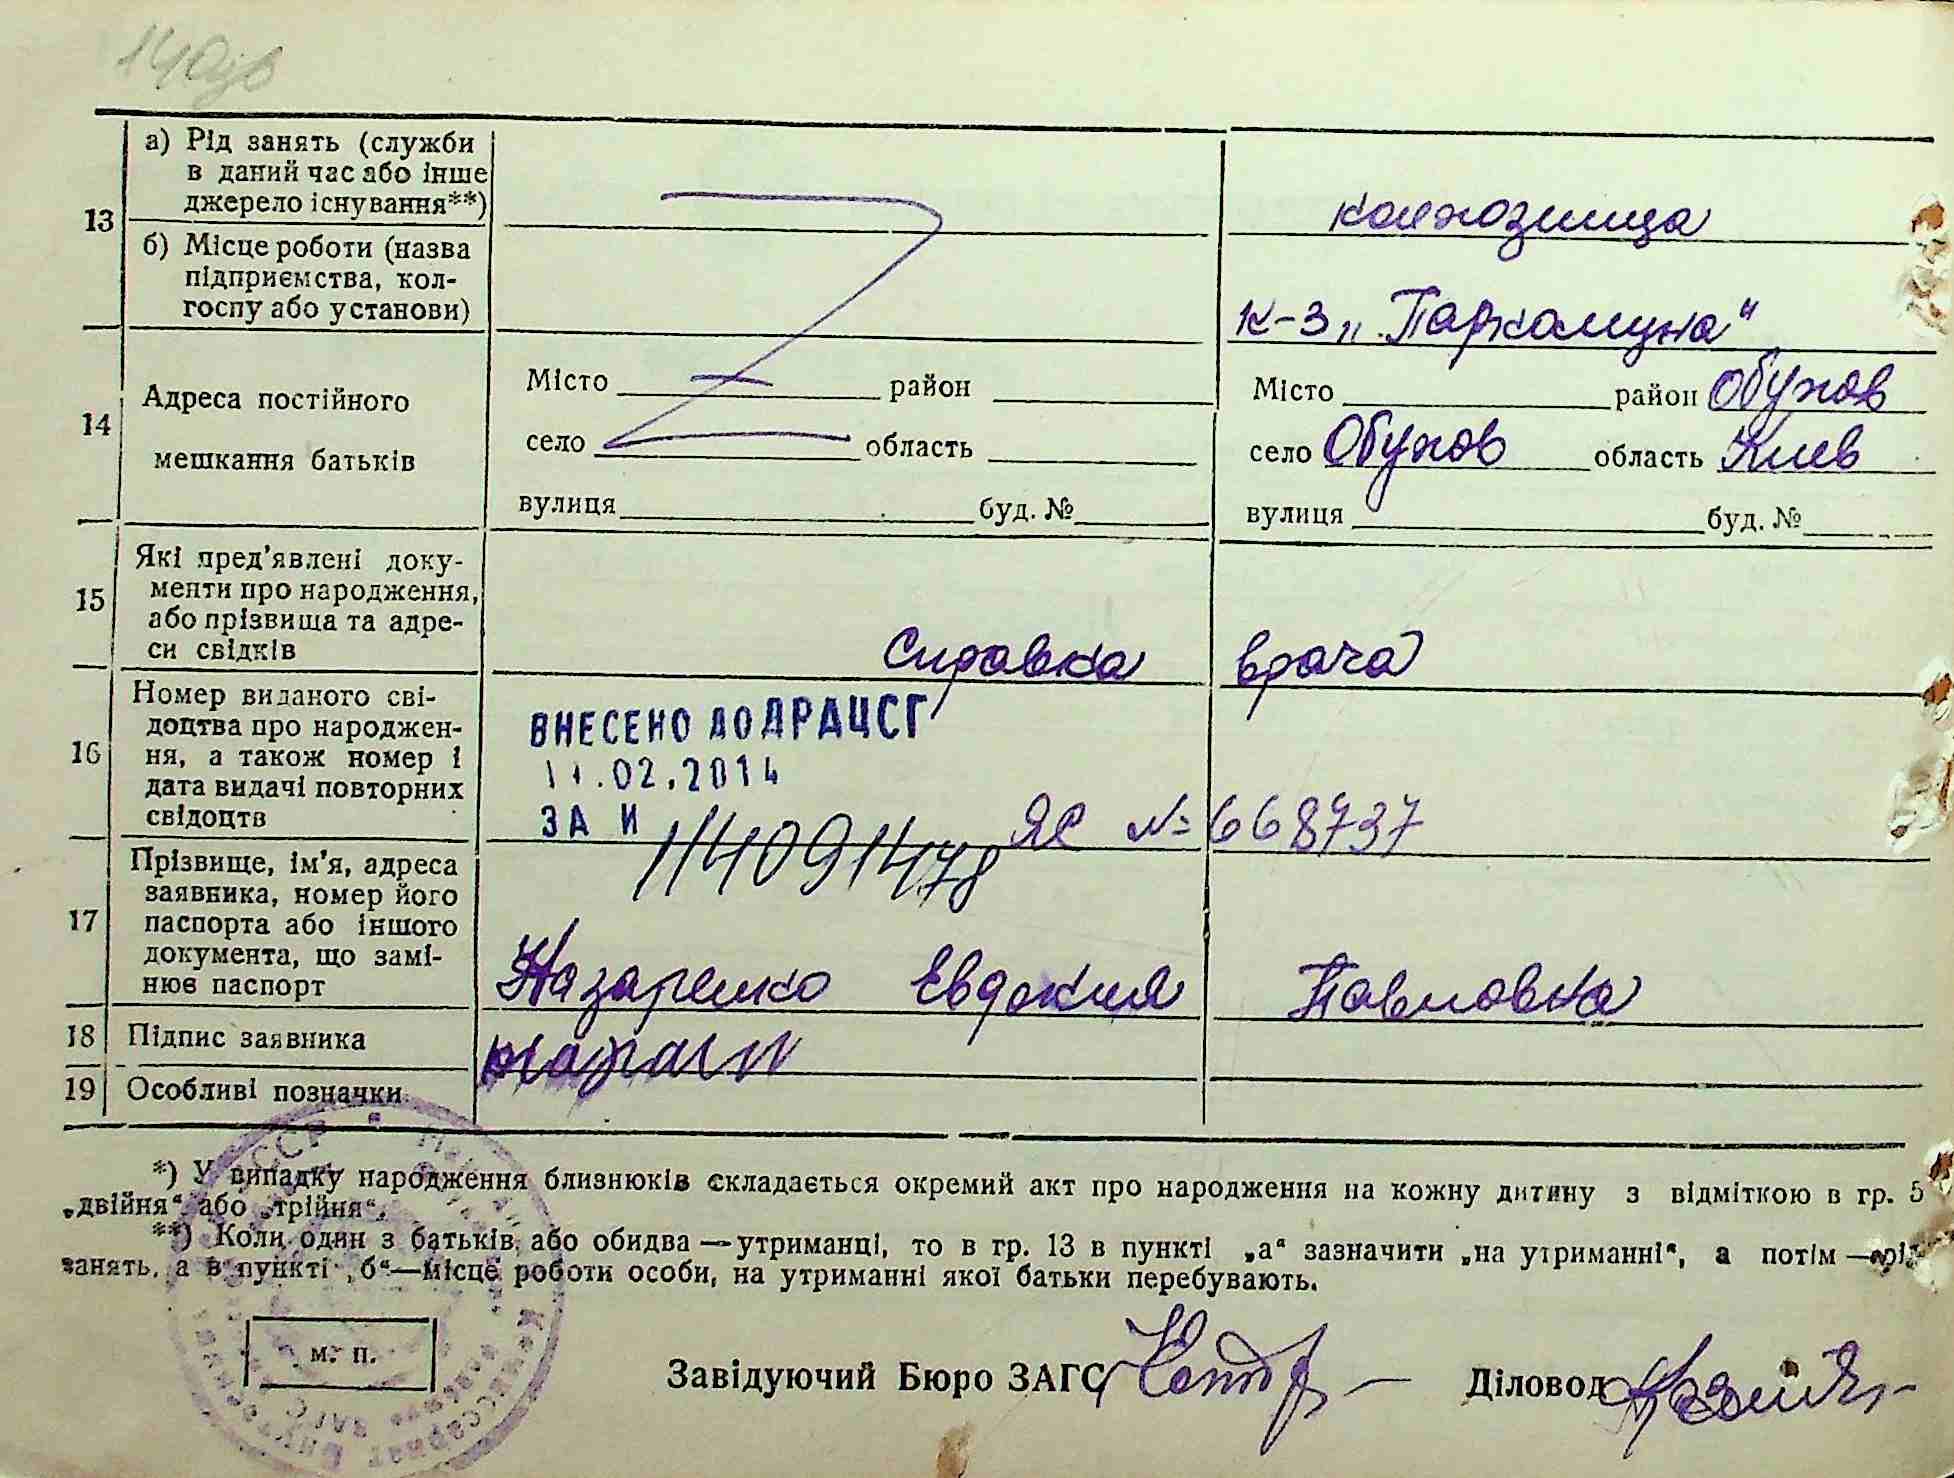 140зв
13
а) Рід занять (служби
в даний час або інше
джерело існування**)
колхозница
б) Місце роботи (назва
підприємства, кол-
госпу або установи)
к-з „Паркомуна“
14
Адреса постійного
мешкання батьків
Місто район
село область
вулиця буд. №
Місто район Обухов
село Обухов область Киев
вулиця буд. №
15
Які пред'явлені доку-
менти про народження,
або прізвища та адре-
си свідків
Справка врача
16
Номер виданого сві-
доцтва про народжен-
ня, а також номер і
дата видачі повторних
свідоцтв
ВНЕСЕНО ДО ДРАЦСГ
11.02.2014
ЗА №
114091478
ЯС № 668737
17
Прізвище, ім'я, адреса
заявника, номер його
паспорта або іншого
документа, що замі-
нює паспорт
Назаренко Евдокия Павловна
18
Підпис заявника
19
Особливі позначки
*) У випадку народження близнюків складається окремий акт про народження на кожну дитину з відміткою в гр. 5
„двійня“ або „трійня“.
**) Коли один з батьків або обидва — утриманці, то в гр. 13 в пункті „а“ зазначити „на утриманні“, а потім — рід
занять, а в пункті „б“ — місце роботи особи, на утриманні якої батьки перебувають.
м. п.
Завідуючий Бюро ЗАГС
Діловод